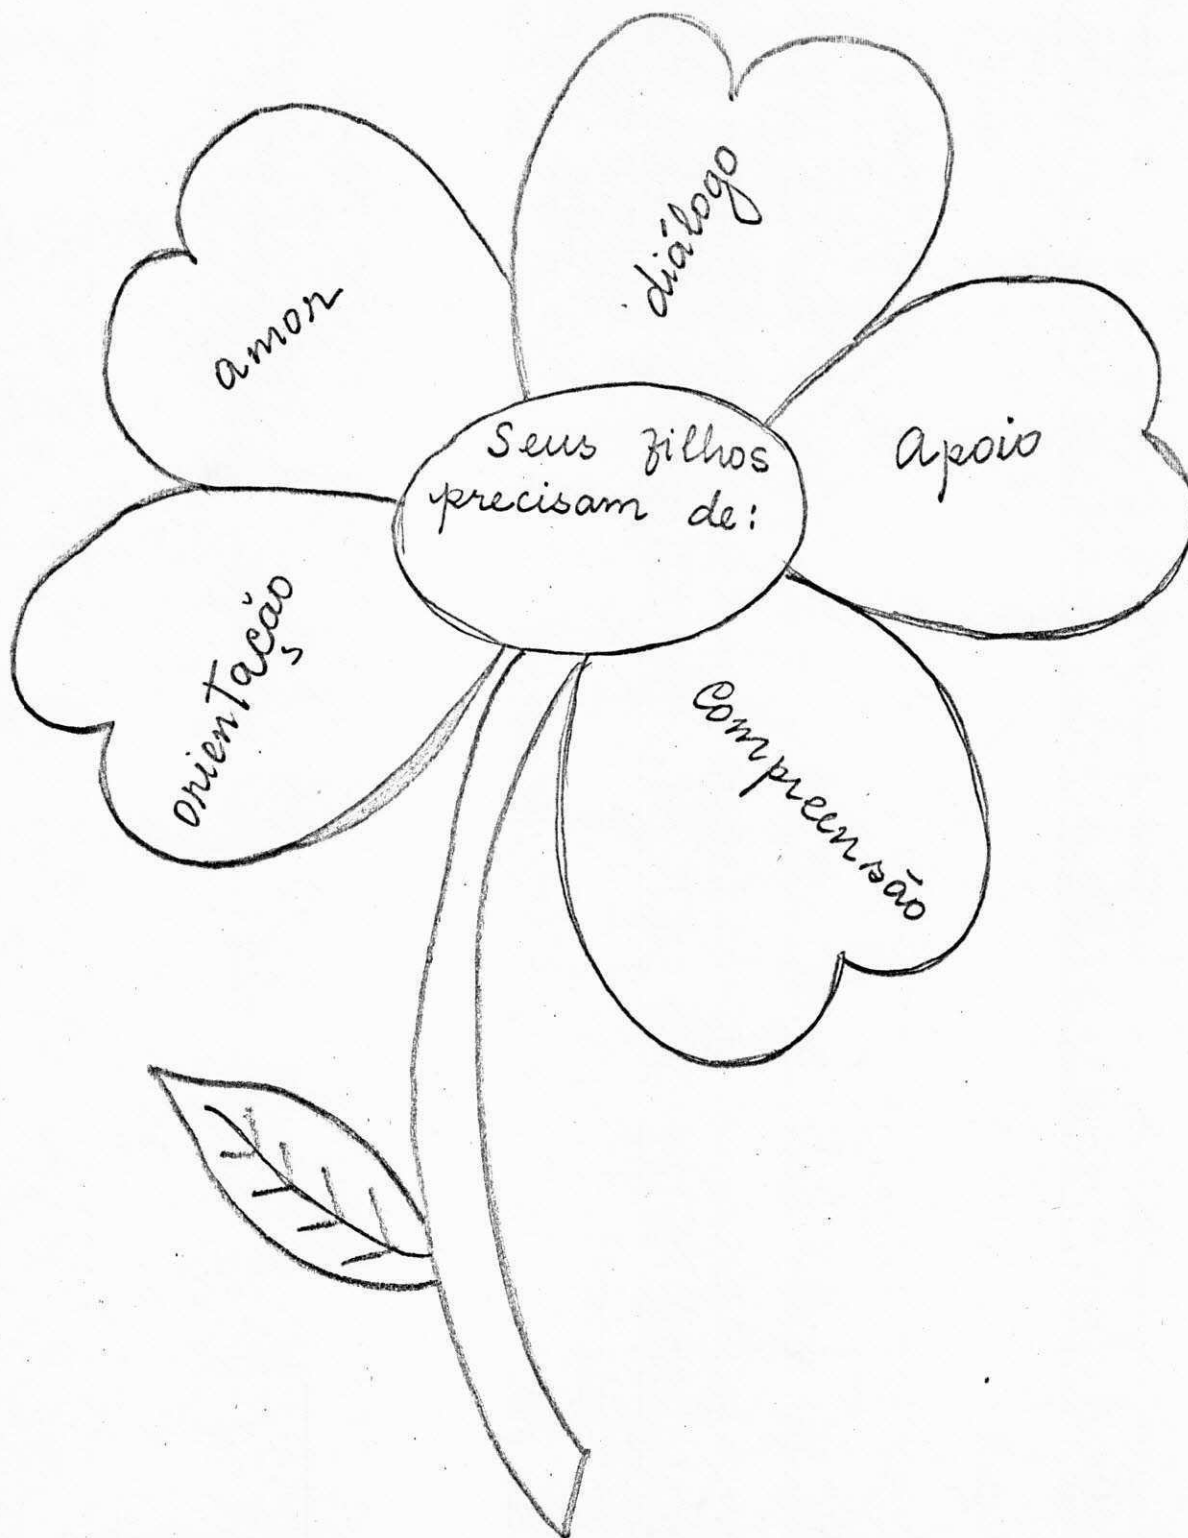 Seus filhos
precisam de:
amor
diálogo
apoio
compreensão
orientação